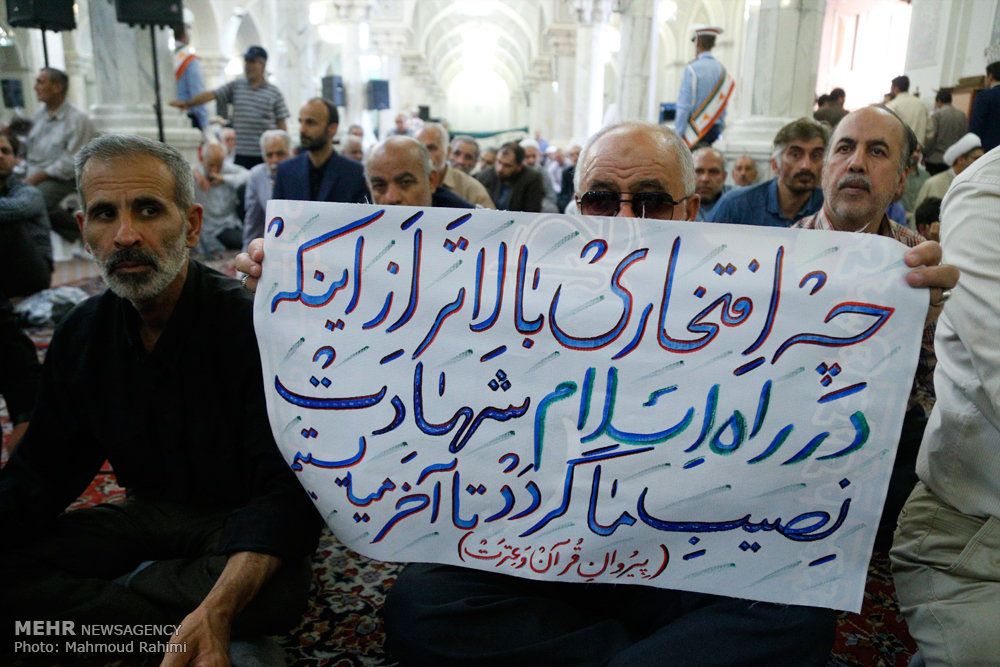 چه افتخاری بالاتر از اینکه
در راه اسلام شهادت
نصیب ما گردد تا آخر میایستیم
(پیروان قرآن و عترت)
MEHR NEWSAGENCY
Photo: Mahmoud Rahimi